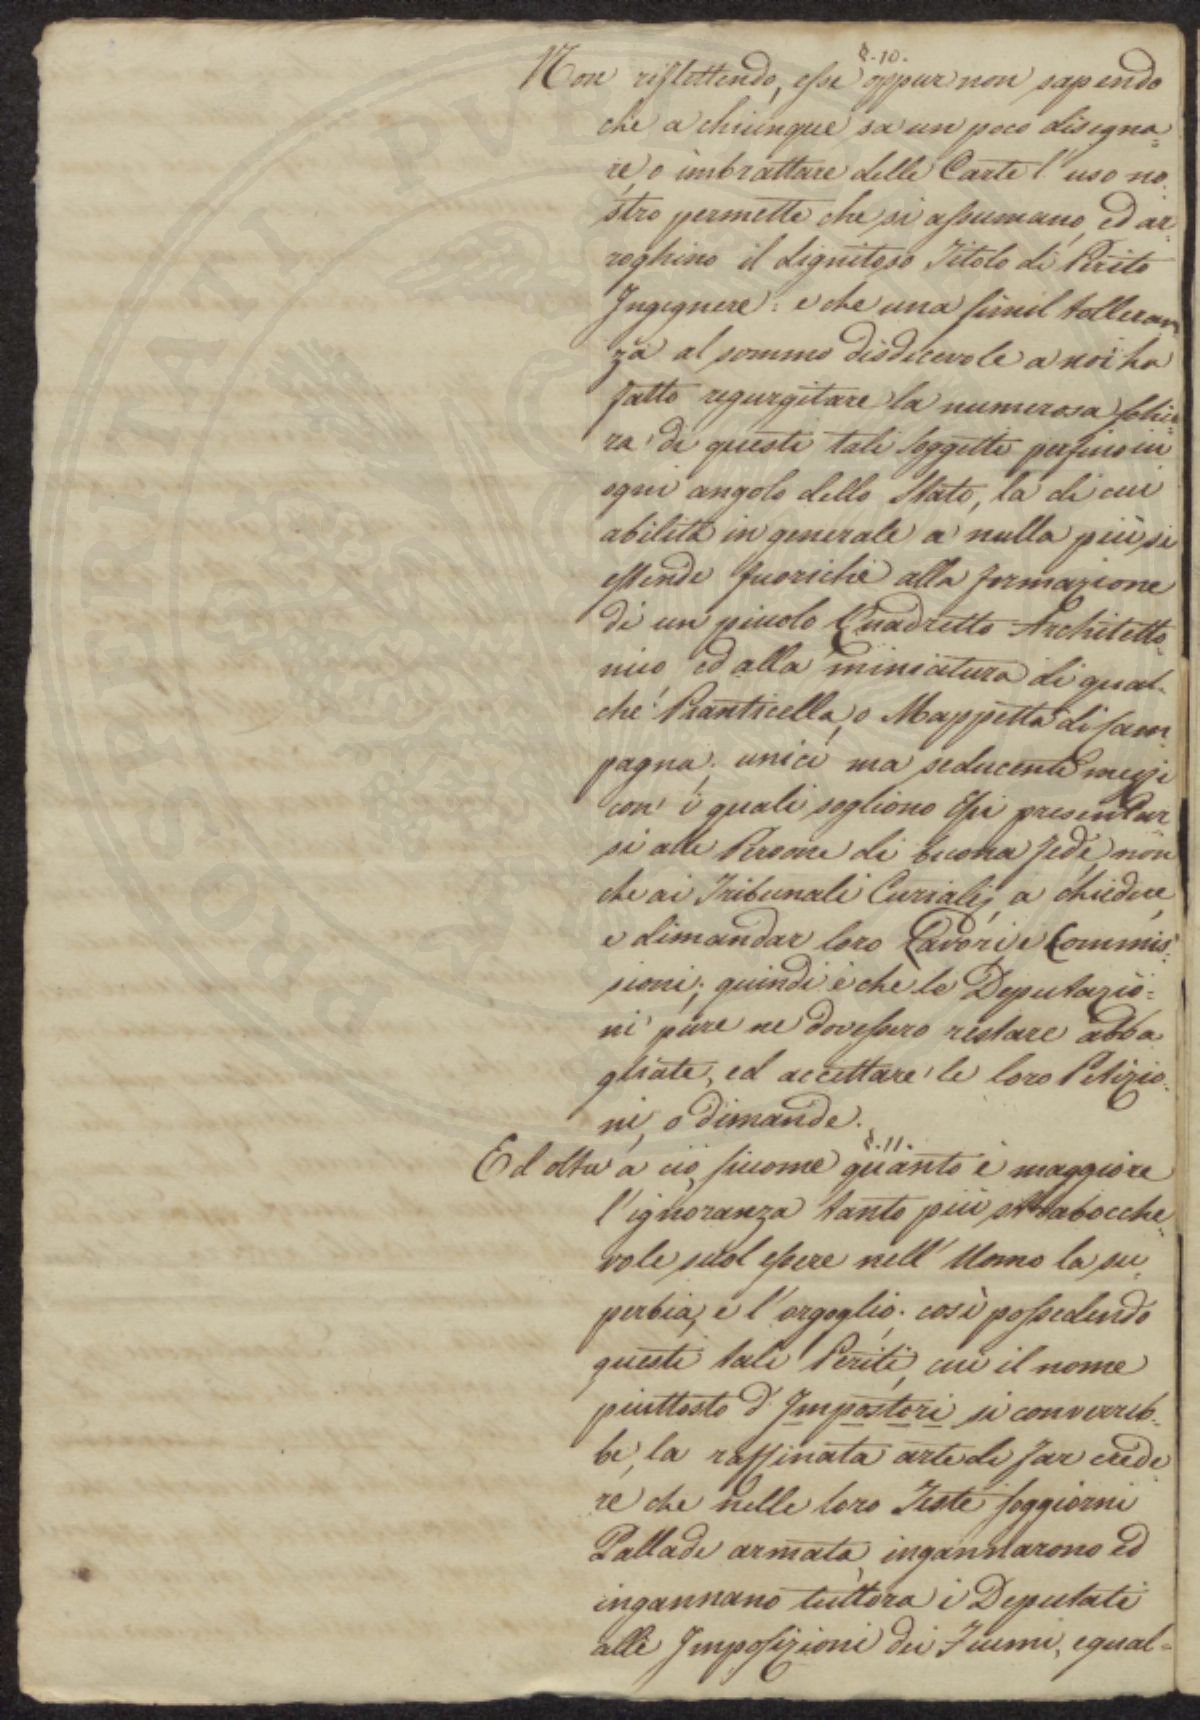 §. 10.
Non riflettendo, esse oppur non sapendo
che a chiunque sa un poco disegna=
re, o imbrattare delle Carte l'uso no=
stro permette che si assumano, ed ar=
roghino il dignitoso Titolo di Perito
Ingegnere: e che una simil tolleran
za al sommo disdicevole a noi ha
fatto regurgitare la numerosa schie=
ra di questi tali soggetti perfino in
ogni angolo dello Stato, la di cui
abilità in generale a nulla più si
estende fuorichè alla formazione
di un picolo Quadretto Architetto=
nico ed alla miniatura di qual=
che Pianticella, o Mappetta di Cam=
pagna, unici ma seducenti mezzi
con i quali sogliono essi presentar
si alle Persone di buona fede, non
che ai Tribunali Curiali, a chiedere,
e dimandar loro Lavori, e Commis=
sioni; quindi è che le Deputazio=
ni pure ne dovessero restare abba
gliate, ed accettare le loro Petizio=
ni, o dimande.
§. 11.
Ed oltre a ciò, sicome quanto è maggiore
l'ignoranza tanto più strabocche=
vole suol essere nell'Uomo la su=
perbia, e l'orgoglio: così possedendo
questi tali Periti, cui il nome
piuttosto d'Impostori si converreb=
be, la raffinata arte di far crede
re che nelle loro Teste soggiorni
Pallade armata, ingannarono ed
ingannano tuttora i Deputati
alle Imposizioni dei Fiumi, egual=
POSPERITATI PUBL